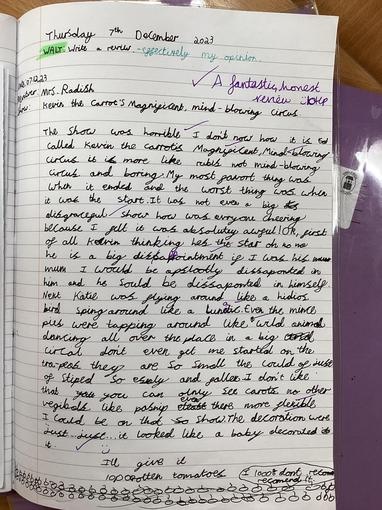 Thursday 7th December 2023
WALT: Write a review - effectively my opinion.
A fantastic, honest
review
Mrs. Radish
Kevin the Carrot's Magnificent, mind-blowing circus
The show was horrible I don't now how it is
called Kevin the carrot's Magnificent, Mind-blowing
circus it is more like rubish not mind-blowing
circus and boring. My most favort thing was
when it ended and the worst thing was when
it was the start. It was not even a big
disgraceful show how was everyone cheering
because I felt it was absolutely awful! OK, first
of all Kevin thinking hes the star oh no no
he is a big disappointment if I was his
mum I would be dissapointed in
him and he sould be dissapointed in himself.
Next Katie was flying around like a hidios
bird sping around like a lunatic. Even the mince
pies were tapping around like wild animal
dancing all over the place in a big
circal dont even get me started on the
trapess they are so small the could of just
of sliped so esaly and fallen I don't like
that you can only see carots no other
vegtbals like pasnip there more flexible
I could be on that show. The decoration were
just it looked like a baby decorated
it.
I'll give it
1000 rotten tomatoes
I 1000% dont
recomend it.